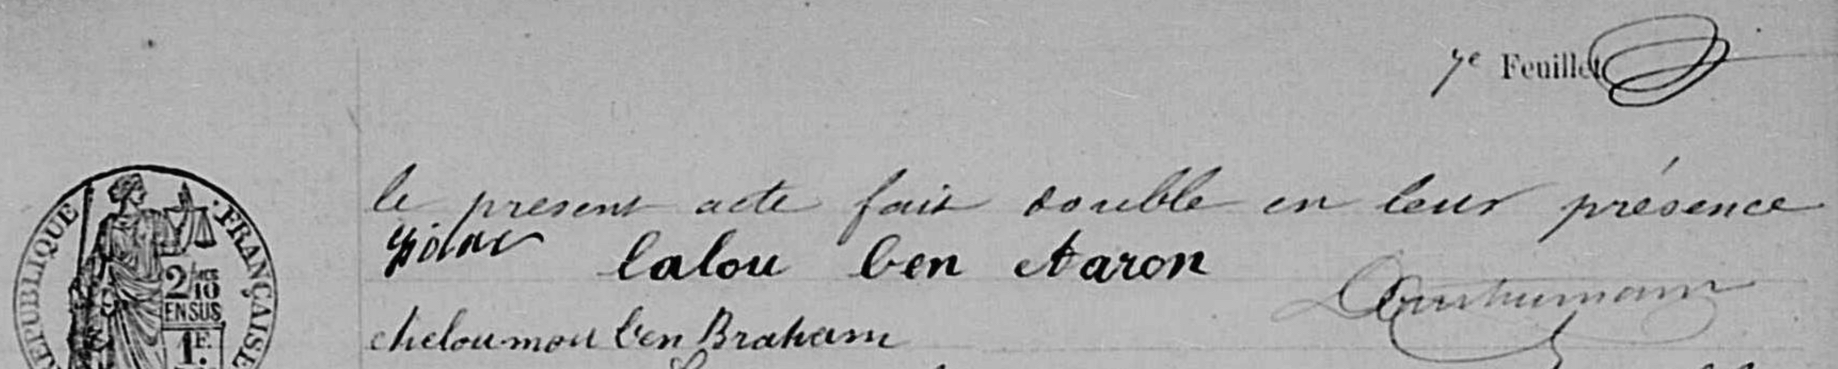 7e Feuillet
le present acte fait double en leur présence
lalou ben Aaron
cheloumou ben Braham
RÉPUBLIQUE FRANÇAISE
2/10
EN SUS
1F.